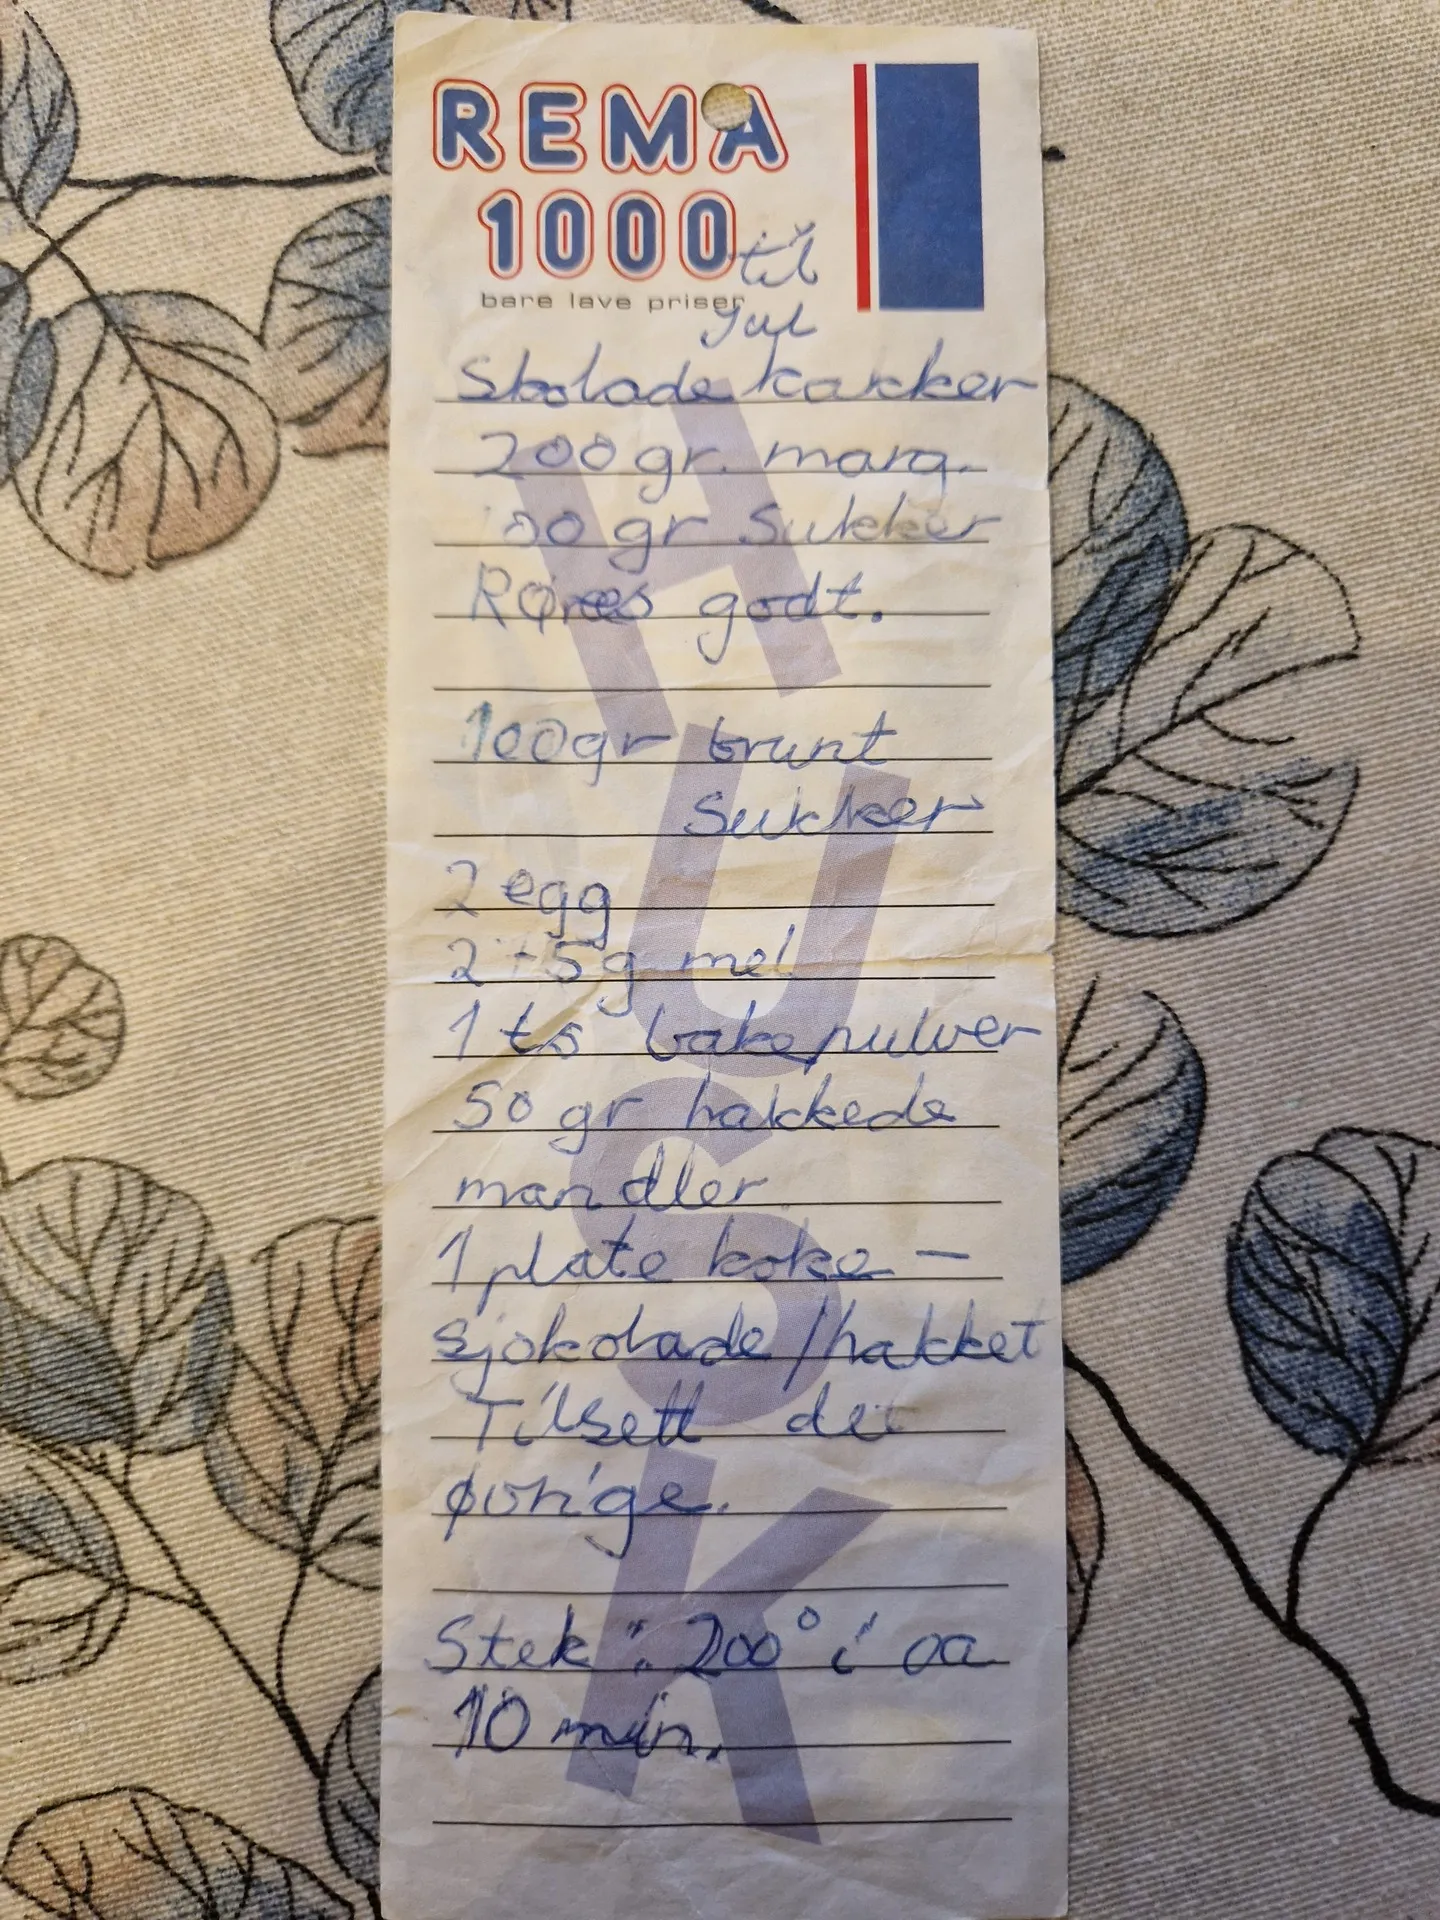 REMA
1000
bare lave priser
til
Jul
Skolade kakker
200 gr. marg.
gr Sukker
Røres godt.
100gr brunt
Sukker
2 egg
mel
1 ts bakepulver
50 gr hakkede
mandler
1 plate koke-
sjokolade/hakket
Tilsett det
øvrige.
Stek: 200° i ca
10 min.
HUSK